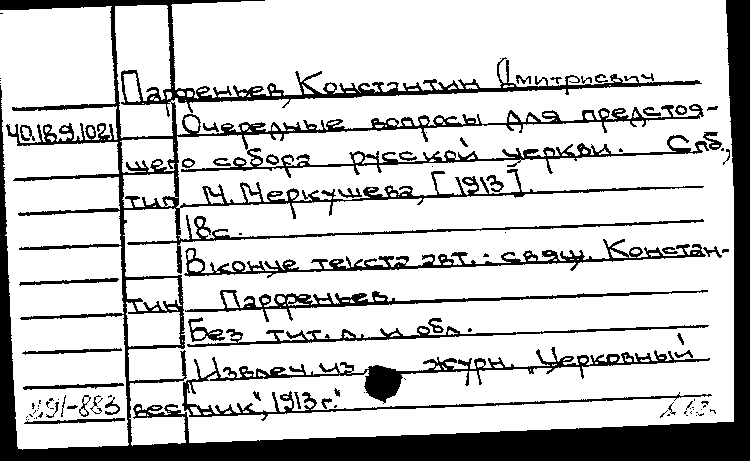 Парфеньев, Константин Дмитриевич
40.18.9.1021 Очередные вопросы для предстоя-
щего собора русской церкви. Спб.,
тип. М. Меркушева, [1913].
18с.
В конце текста авт.: свящ. Констан-
тин Парфеньев.
Без тит. л. и обл.
Извлеч. из журн. „Церковный
291-883 вестник", 1913 г."